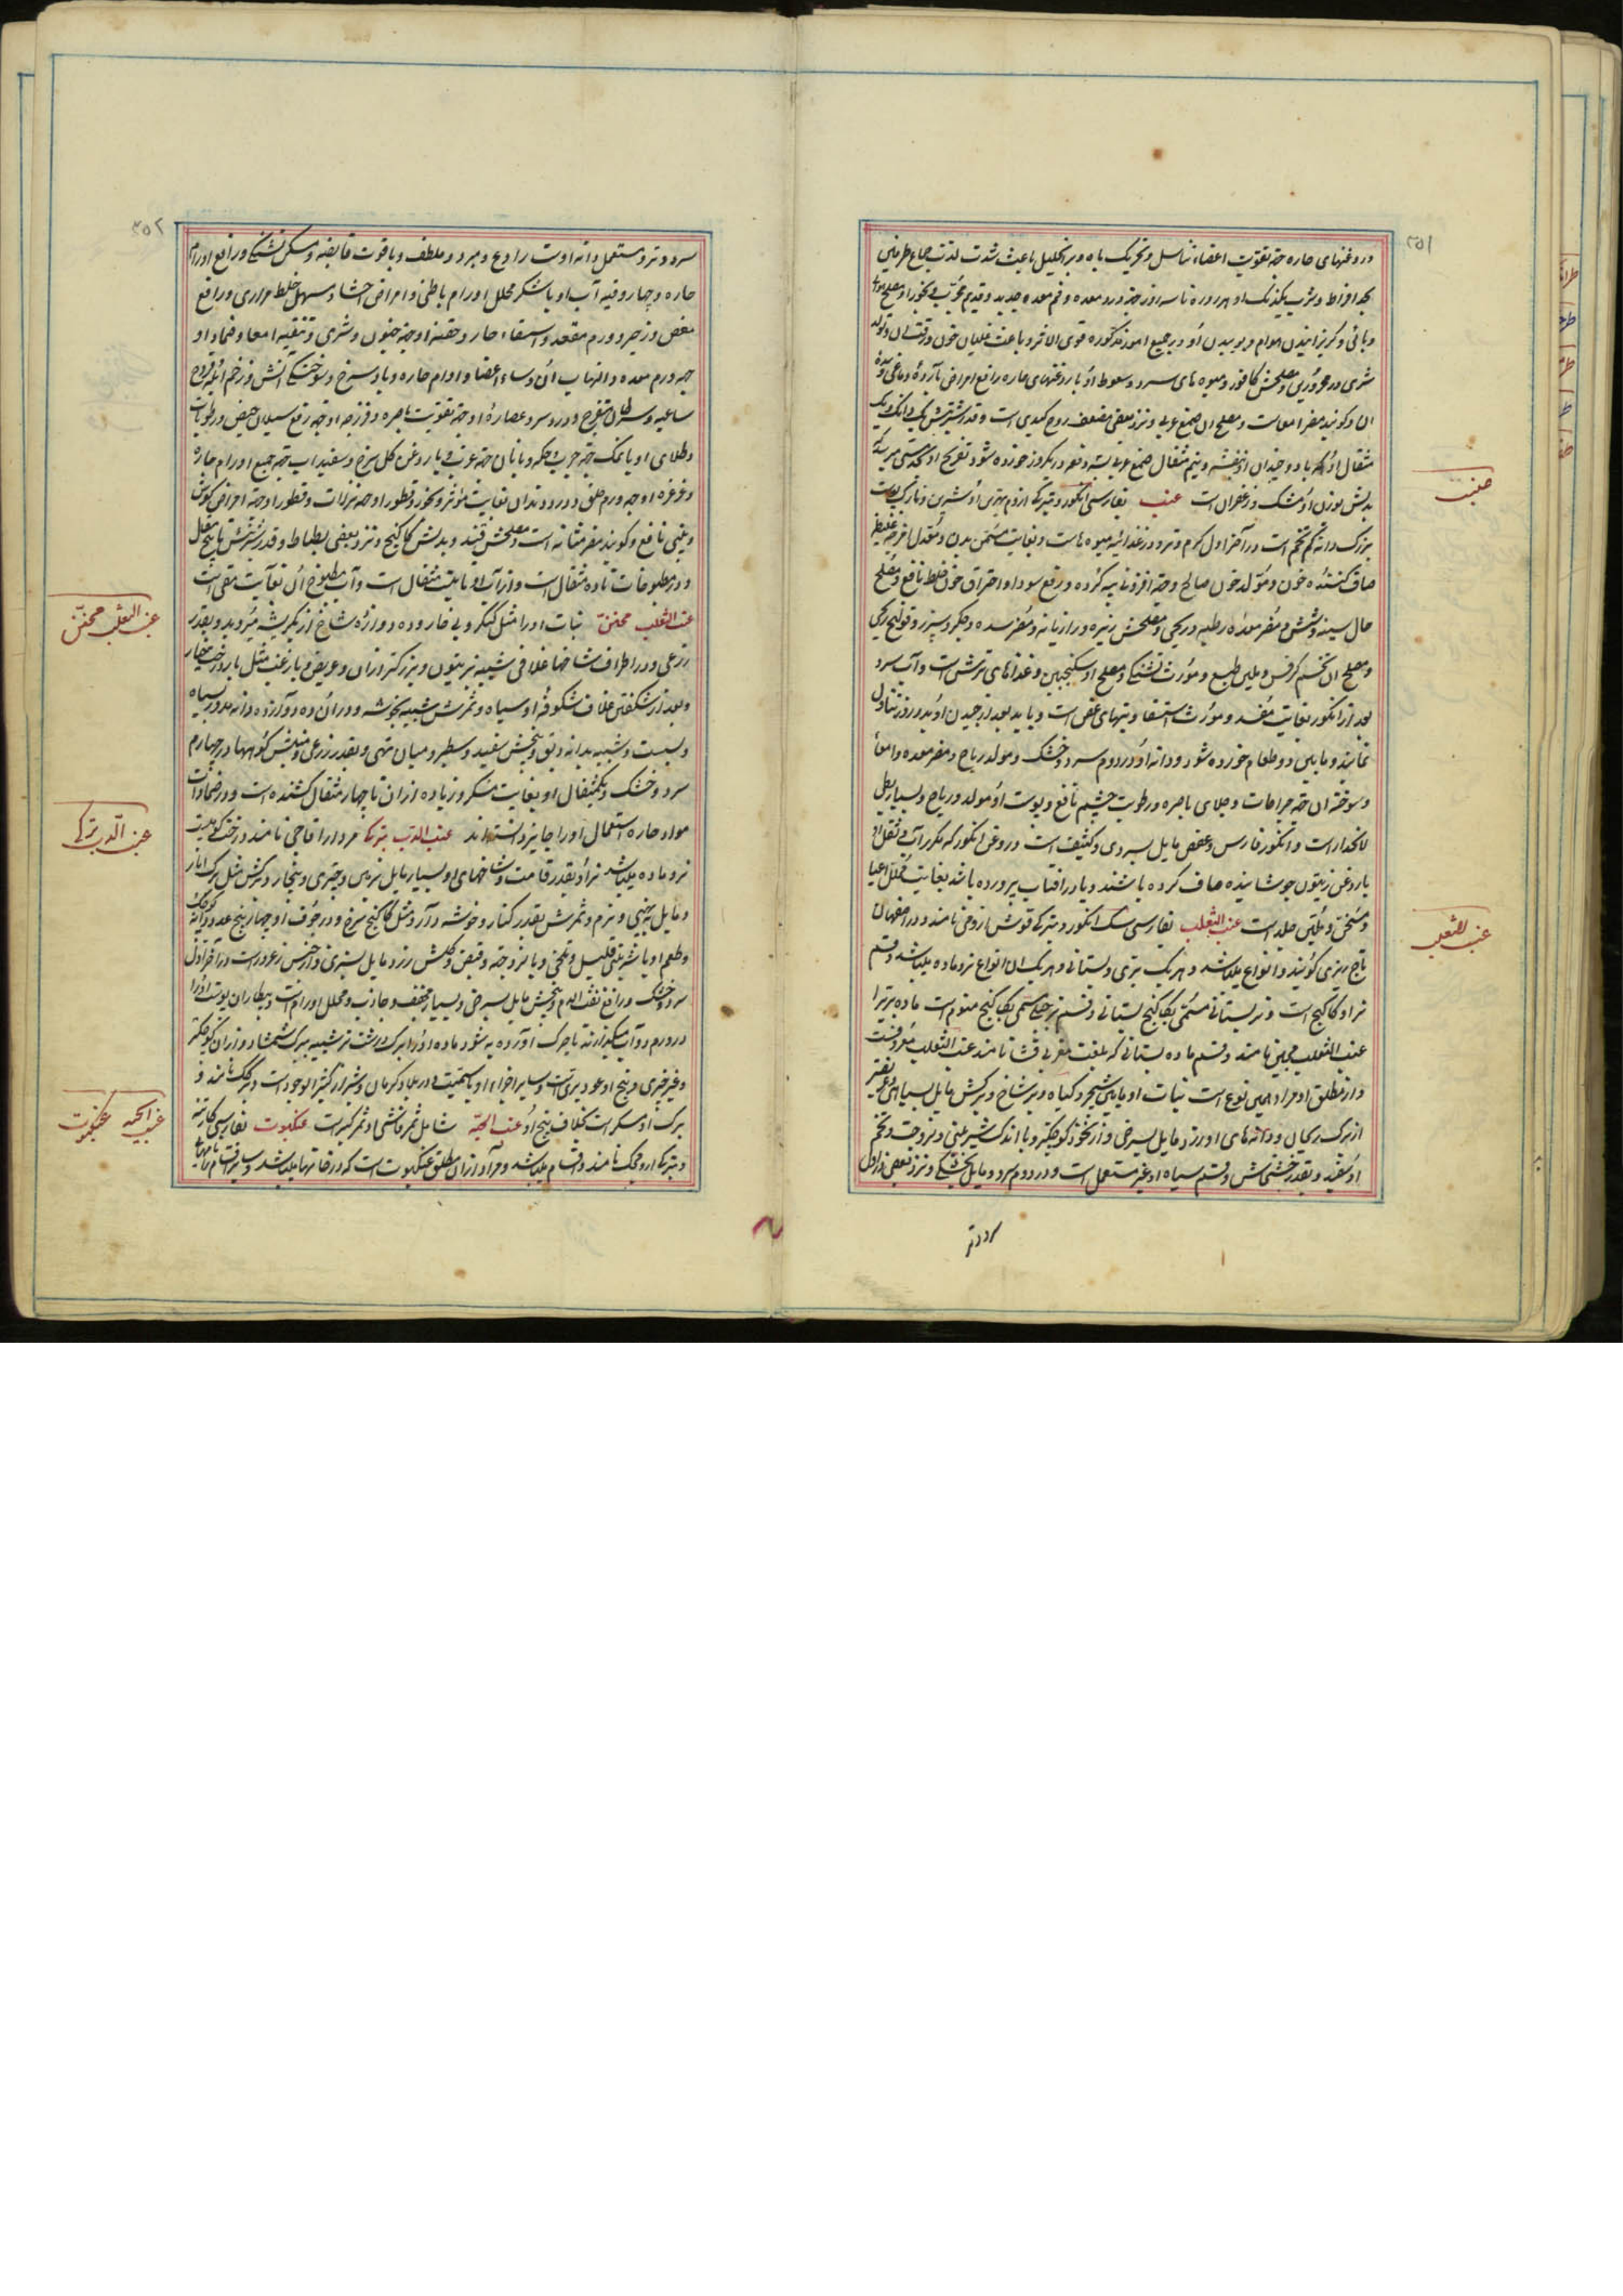 ۲۵۱
و روغنهای حاره جهة تقویت اعضاء تناسل و تحریک باه و بر انحلیل باعث شدت لذت جماع طرفین
بحد افراط و شرب یکدنک او هر روزه تا سه روز جهة درد معده و فم معده جدید و قدیم مجرب و بخور او مصلح هوای
وبائی و گریزانیدن هوام و بوییدن او در جمیع امور مذکوره قوی الاثر و باعث غلیان خون و رقت آن و تولد
شری در محرورین و مصلحش کافور و میوه های سرد و سعوط او با روغنهای حاره رافع امراض بارده دماغی و سده
آن و گویند مضر امعاست و مصلح آن صمغ عربی و نزد بعضی مضعف روح کبدی است و قدر شربتش یک دانک و یک
مثقال او که با دو چندان او بنفشه و نیم مثقال صمغ عربی و در یکروز خورده شود تفریح او بحد مستی میرسد
بدلش بوزن او مشک و زعفران است عنب بفارسی انگور و بترکی ازوم بهترین او شیرین و نازک پوست
بزرگ دانه کم تخم است در آخر اول گرم و تر و در غذائیه میوه هاست و بغایت مسمن بدن و معدل امزجه غلیظ
صاف کننده خون و مولد خون صالح و جهة افزونی پیه گرده و رفع سودا و احتراق خون خلط نافع و مصلح
حال سینه و شش و مضر معده رطبه و ریحی و مصلحش زیره و رازیانه و مضر سده و جگر و سپرز و قولنج ریحی
و مصلح آن تخم کرفس و ملین طبع و مورث تشنگی و مصلح او سکنجبین و غذاهای ترش است و آب سرد
بعد از انگور بغایت مفسد و مورث استسقا و تبهای عفن است و باید بعد از چیدن او بدو روز تناول
نمایند و مابین دو طعام خورده شود و دانه او در دوم سرد و خشک و مولد ریاح و مضر معده و امعا
و سوخته آن جهة جراحات و جلای باصره و رطوبت چشم نافع و پوست او مولد ریاح و بسیار بطی
الانحدار است و انگور فارس و عفص مایل بسردی و کثیف است و روغن انگور که مکرر آب و ثفل او
با روغن زیتون جوشانیده صاف کرده باشند و یا در افتاب پرورده باشد بغایت محلل اعیا
و مسخن و ملین جلد است عنب الثعلب بفارسی سک انگور و بترکی قوش ازومی نامند و در اصفهان
تاج ریزی گویند و انواع میباشد و هر یک بری و بستانی و هر یک از انواع نر و ماده میباشد و قسم
نر او کاکنج است و نر بستانی مسمی بکاکنج بستانی و قسم نر جبلی مسمی بکاکنج منوم است ماده بری را
عنب الثعلب مجنن نامند و قسم ماده بستانی که بلغت مغربی فنا نامند عنب الثعلب معروفست
و از مطلق او مراد همین نوع است نبات او مابین شجر و گیاه و پر شاخ و برگش مایل بسیاهی و عریضتر
از برگ ریحان و دانهای او زرد مایل بسرخی و از نخود کوچکتر و با اندک شیرینی و لزوجت و تخم
او سفید و بقدر خشخاش و قسم سیاه او غیر مستعمل است و در دوم سرد و مایل بخشکی و نزد بعضی در اول
سرد و تر
عنب
عنب الثعلب
۲۵۲
سرد و تر و مستعمل دانه اوست رادع و مبرد و ملطف و با قوت قابضه و مسکن تشنگی و رافع اورام
حاره و چهار وقیه آب او با شکر محلل اورام باطنی و امراض احشا و مسهل خلط مراری و رافع
مغص و زحیر و ورم مقعد و استسقاء حار و حقنه او جهة جنون و شری و تنقیه امعا و ضماد او
جهة ورم معده و التهاب آن و سایر اعضا و اورام حاره و باد سرخ و سوختگی آتش و زخم نمله و قروح
ساعیه و سرطان متقرح و درد سر و عصاره او جهة تقویت باصره و فرزجه او جهة رفع سیلان حیض و رطوبات
و طلای او با نمک جهة جرب و حکه و با نان جهة غرب و با روغن گل سرخ و سفیداب جهة جمیع اورام حاره
و غرغره او جهة ورم حلق و درد دندان بغایت مؤثر و بخور و قطور او جهة نزلات و قطور او جهة امراض گوش
و بینی نافع و گویند مضر مثانه است و مصلحش قند و بدلش کاکنج و نزد بعضی بطباط و قدر شربتش تا پنج مثقال
و در مطبوخات تا ده مثقال است و از آب او تا بیست مثقال است و آب مطبوخ آن بغایت مقی است
عنب الثعلب مجنن نبات او را مثل کنگر و بی خار و ده دوازده شاخ از یکریشه میروید و بقدر
زرعی و در اطراف شاخها غلافی شبیه بزیتون و بزرگتر از آن و عریض و با زغب مثل بار درخت چنار
و بعد از شکفتن غلاف شکوفه او سیاه و ثمرش شبیه بخوشه و در آن ده دوازده دانه مدور سیاه
و سست و شبیه بدانه دبق و بیخش سفید و سطبر و میان تهی و بقدر زرعی و منبتش کوهها و در چهارم
سرد و خشک و یکمثقال او بغایت مسکر و زیاده از آن تا چهار مثقال کشنده است و در ضمادات
مواد حاره استعمال او را جایز دانسته اند عنب الدب بترکی مردار اقاجی نامند درختی کوهیست
نر و ماده میباشد نر او بقدر قامت و شاخهای او بسیار مایل بزمین و چتری و بیخار و برگش مثل برگ انار
و مایل بپهنی و نرم و ثمرش بقدر کنار و خوشه دار و مثل کاکنج سرخ و در جوف او چهار پنج عدد دانه کوچک
و طعم او با شیرینی قلیل و تلخی و با لزوجت و قبض و گلش زرد مایل بسبزی و از جنس زعرور است در آخر اول
سرد و خشک و رافع نفث الدم و بیخش مایل بسرخی و بسیار مجفف و جاذب و محلل اورام است و بیطاران پوست او را
در ورم دواب میگذارند تا چرک آورده به شود ماده او را برگ درشت تر شبیه ببرگ شمشاد و از آن کوچکتر
و غیر چتری و بیخ او عود بری است و سایر اجزاء او با سمیت و در بلاد کرمان و شیراز کثیر الوجود است و برگ نامند و
برگ او مسکر است بخلاف بیخ او عنب الحیة شامل ثمر فاشی و ثمر کبر است عنکبوت بفارسی کارتنه
و بترکی ارومجک نامند و اقسام میباشد و مراد از آن مطلق عنکبوت است که در خانها میباشد و سایر اقسام نامها
عنب الثعلب مجنن
عنب الدب بترکی
عنب الحیه عنکبوت